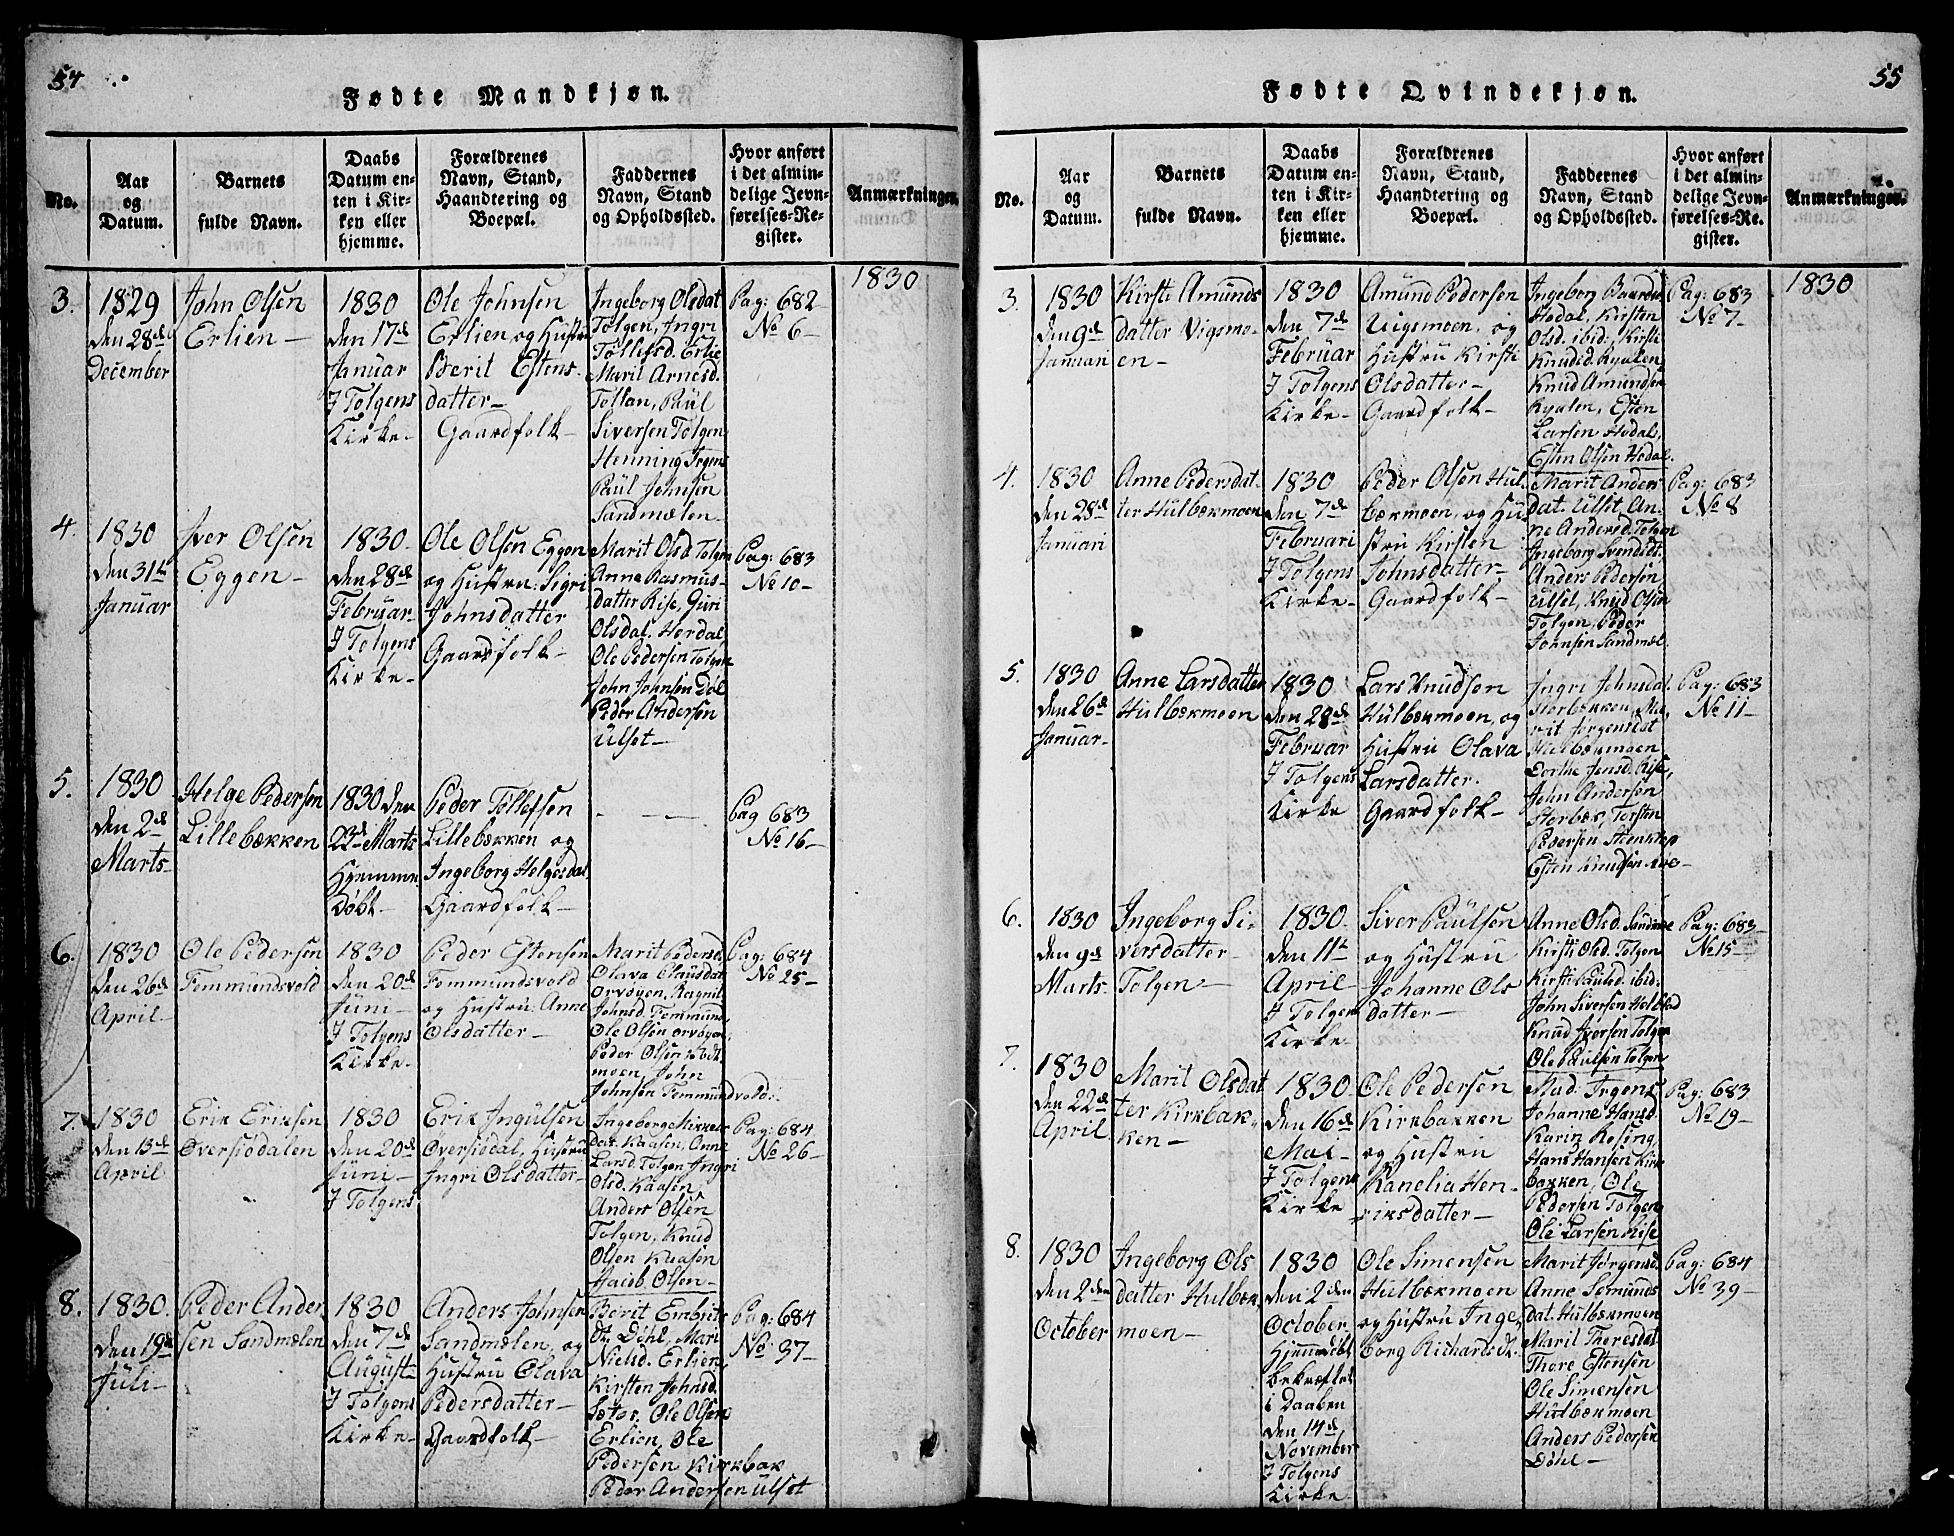 54
Fødte Mandkjøn.
No.
Aar
og
Datum.
Barnets
fulde Navn.
Daabs
Datum en-
ten i Kir-
ken eller
hjemme.
Forældrenes
Navn, Stand,
Haandtering og
Boepæl.
Faddernes
Navn, Stand
og Opholdssted.
Hvor anført
i det almin-
delige Jevn-
førelses-Re-
gister.
Anmærkninger.
1830
3.
1829
den 28de
December
John Olsen
Erlien
1830
den 17de
Januar
I Tolgens
Kirke
Ole Johnsen
Erlien og Hustru
Berit Estens
datter
Gaardfolk
Ingeborg Olsdat
Tolgen, Ingri
Tollefsd. Erlie
Marit Arnesd.
Tollan, Paul
Siversen Tolgen
Henning Irgens
Paul Johnsen
Sandmælen
Pag: 682
No 6
4.
1830
den 31te
Januar
Iver Olsen
Eggen
1830
den 28de
Februar
I Tolgens
Kirke
Ole Olsen Eggen
og Hustru: Sigri
Johnsdatter
Gaardfolk
Marit Olsd. Tolgen
Anne Rasmus-
datter Rise, Guri
Olsdat. Hordal
Ole Pedersen Tolgen
John Johnsen Døl
Peder Andersen
Ulset
Pag: 683
No 10
5.
1830
den 2de
Marts
Helge Pedersen
Lillebækken
1830 den
23de Marts
Hjemme
Døbt
Peder Tollefsen
Lillebækken og
Ingeborg Helgesdat
Gaardfolk
Pag 683
No 16
6.
1830
den 26de
April
Ole Pedersen
Femmundsvold
1830
den 20de
Juni
I Tolgens
Kirke
Peder Estensen
Femmundsvold
og Hustru: Anne
Olsdatter
Marit Pedersd.
Olava Clausdat
Orvøyen, Ragnil
Johnsd. Femmund
Ole Olsen Orvøyen
Peder Olsen
moen, John
Johnsen Femmundvold.
Pag: 684
No 25
7.
1830
den 13de
April
Erik Eriksen
Øversiødalen
1830
den 20de
Juni
I Tolgens
Erik Ingulsen
Øversiødal, Hustru
Ingri Olsdatter
Ingeborg Mikkels
dat. Kaasen, Anne
Larsd. Tolgen Ingri
Olsd. Kaasen
Anders Olsen
Tolgen, Knud
Olsen Kaasen
Jacob Olsen
Pag: 684
No 26
8.
1830.
den 19de
Juli
Peder Ander
sen Sandmælen
1830
den 7de
August
I Tolgens
Kirke
Anders Johnsen
Sandmælen, og
Hustru Olava
Pedersdatter
Gaardfolk
Berit Embrits
dt. Døhl, Mari
Nielsd. Erlien
Kirsten Johnsd.
Sæter, Ole Olsen
Erlien, Ole
Pedersen Kirkbak
Peder Andersen Ulset
Pag: 684
No 37
55
Fødte Qvindekjøn.
No.
Aar
og
Datum.
Barnets
fulde Navn.
Daabs
Datum en-
ten i Kir-
ken eller
hjemme.
Forældrenes
Navn, Stand,
Haandtering og
Boepæl.
Faddernes
Navn, Stand
og Opholdssted.
Hvor anført
i det almin-
delige Jevn-
førelses-Re-
gister.
Anmærkninger.
1830
3.
1830
den 9de
Januari
Kirsti Amunds
datter Vigsmo-
en
1830
den 7de
Februar
I Tolgens
Kirke
Amund Pedersen
Vigsmoen, og
Hustru Kirsti
Olsdatter
Gaardfolk
Ingeborg Baards
Hodal, Kirsten
Olsd. ibid:, Kirsti
Knudsd. Ryalen
Knud Amundsen
Ryalen, Esten
Larsen Hodal,
Esten Olsen Hodal.
Pag: 683
No 7
4.
1830
den 28de
Januari
Anne Pedersdat
ter Hulbækmoen
1830
den 7de
Februari
I Tolgens
Kirke
Peder Olsen Hul
bækmoen, og Hu
stru Kirsten
Johnsdatter
Gaardfolk
Marit Anders
dat. Ulset, An-
ne Andersd. Tolgen
Ingeborg Svendsdt.
Anders Pedersen
Ulset, Knud Olsen
Tolgen, Peder
Johnsen Sandmæl.
Pag: 683
No 8
5.
1830
den 26de
Januar
Anne Larsdatter
Hulbækmoen
1830
den 28de
Februar
I Tolgens
Kirke
Lars Knudsen
Hulbækmoen, og
Hustru Olava
Larsdatter.
Gaardfolk
Ingri Johnsdat.
Storbækken, Ma-
rit Jørgensdat
Hulbækmoen
Dorthe Jensd. Rise,
John Andersen
Storbæk, Torsten
Pedersen
Esten Knudsen
Pag: 683
No 11
6.
1830
den 9de
Marts
Ingeborg Si-
versdatter
Tolgen
1830
den 11te
April
I Tolgen
Kirke
Siver Paulsen
og Hustru
Johanne Ols
datter
Anne Olsd. Sandmæ
Kirsti Olsd. Tolgen
Kirsti Paulsd. ibid:
John Siversen
Knud Iversen Tolgen
Ole Paulsen Tolgen
Pag: 683
No 15
7.
1830
den 22de
April
Marit Olsdat
ter Kirkbak-
ken
1830
den 16de
Mai
I Tolgens
Kirke
Ole Pedersen
Kirkbakken
og Hustru
Kanelia Hen-
riksdatter
Mad. Irgens,
Johanne Hansd.
Karin Rosing,
Hans Hansen Kirk
bakken, Ole
Pedersen Tolgen
Ole Larsen Rise
Pag: 683
No 19
8.
1830
den 2den
October
Ingeborg Ols
datter Hulbæk
moen
1830
den 2den
October
Hjemmedøbt
bekræftet
i Daaben
den 14de
November
I Tolgens
Kirke
Ole Simensen
Hulbækmoen
og Hustru Inge
borg Richardsdt.
Marit Jørgensd.
Anne Semunds
dat. Hulbækmoen
Marit Thoresdat
Thore Estensen
Ole Simensen
Hulbækmoen
Anders Pedersen
Døhl
Pag: 684
No 39